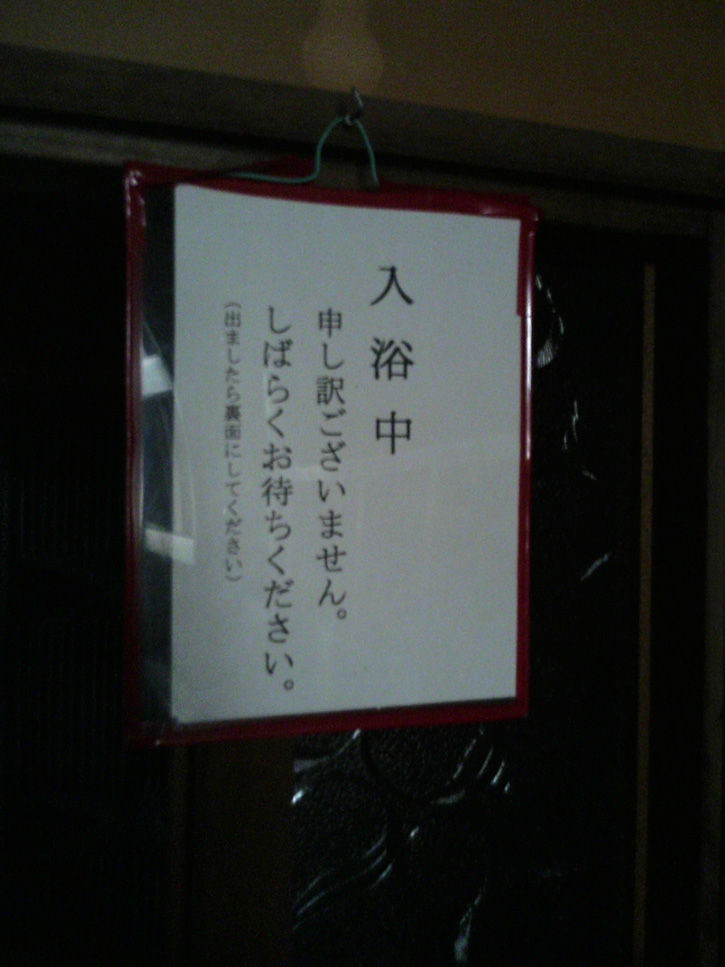 入浴中
申し訳ございません。
しばらくお待ちください。
（出ましたら裏面にしてください）